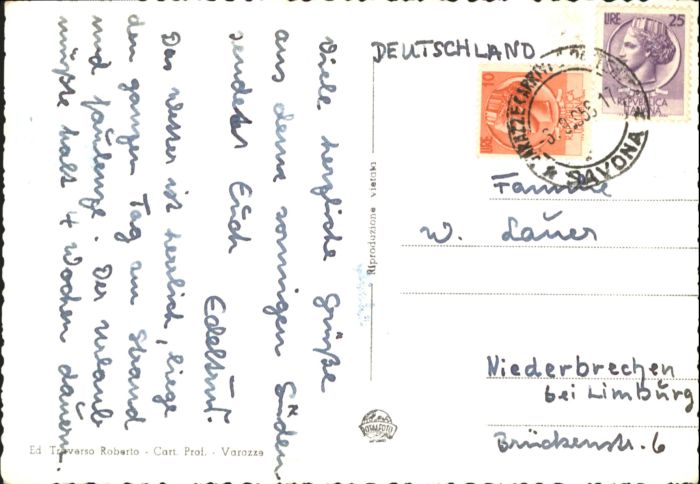 Viele herzliche Grüße
aus dem sonnigen Süden
sendet Euch
Edeltrud.
Das Wetter ist herrlich, liege
den ganzen Tag am Strand
und faulenze. Der Urlaub
müßte halt 4 Wochen dauern.
DEUTSCHLAND
LIRE 25
REPVBBLICA ITALIANA
LIRE 10
SAVONA
Familie
W. Lauer
Niederbrechen
bei Limburg
Brückenstr. 6
Riproduzione vietata
Ed Traverso Roberto - Cart. Prof. - Varazze